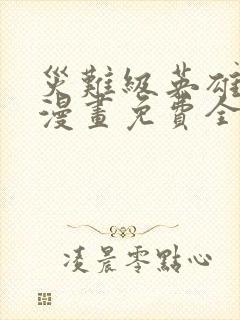 災難級英雄
漫畫免費全
凌晨零點心